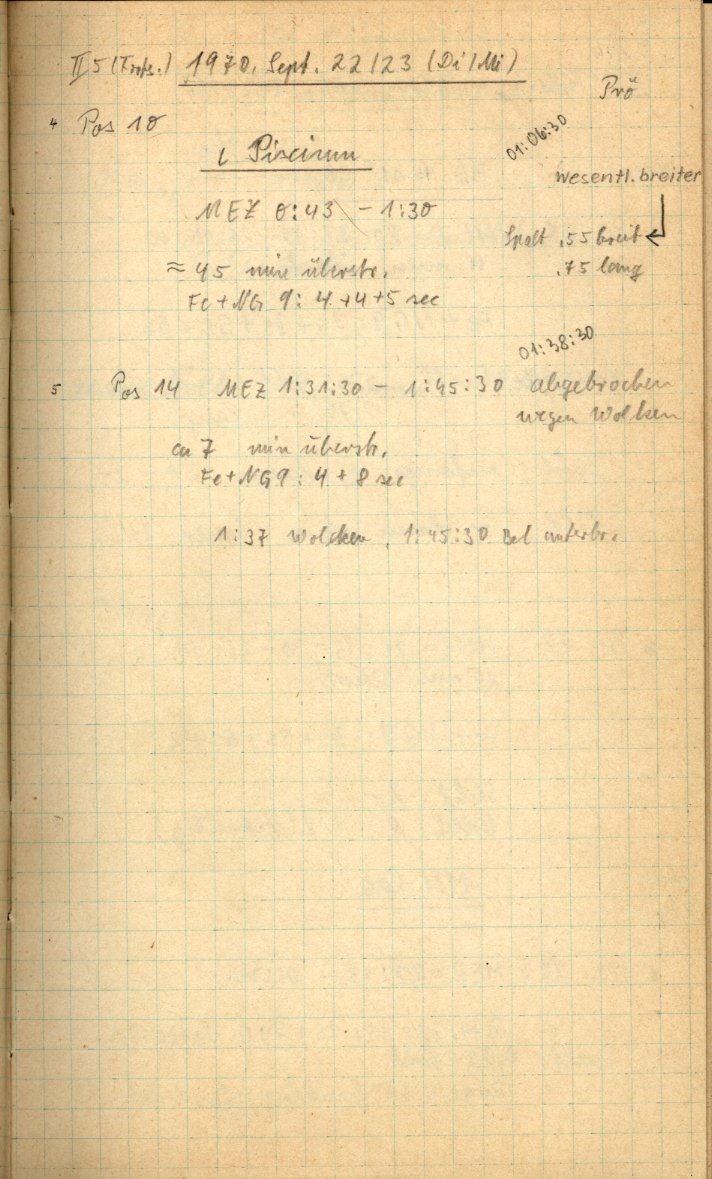 II 5 (Trops.) 1970, Sept. 22/23 (Di/Mi)
Prö
4 Pos 10
01:06:30
ι Piscium
wesentl. breiter
MEZ 0:43 – 1:30
Spalt ,55 breit
≈ 45 min überstr.
,75 lang
Fe + NG 9: 4+4+5 sec
01:38:30
5 Pos 14 MEZ 1:31:30 – 1:45:30 abgebrochen
wegen Wolken
ca 7 min überstr.
Fe + NG 9: 4 + 8 sec
1:37 Wolken, 1:45:30 Bel unterbr.